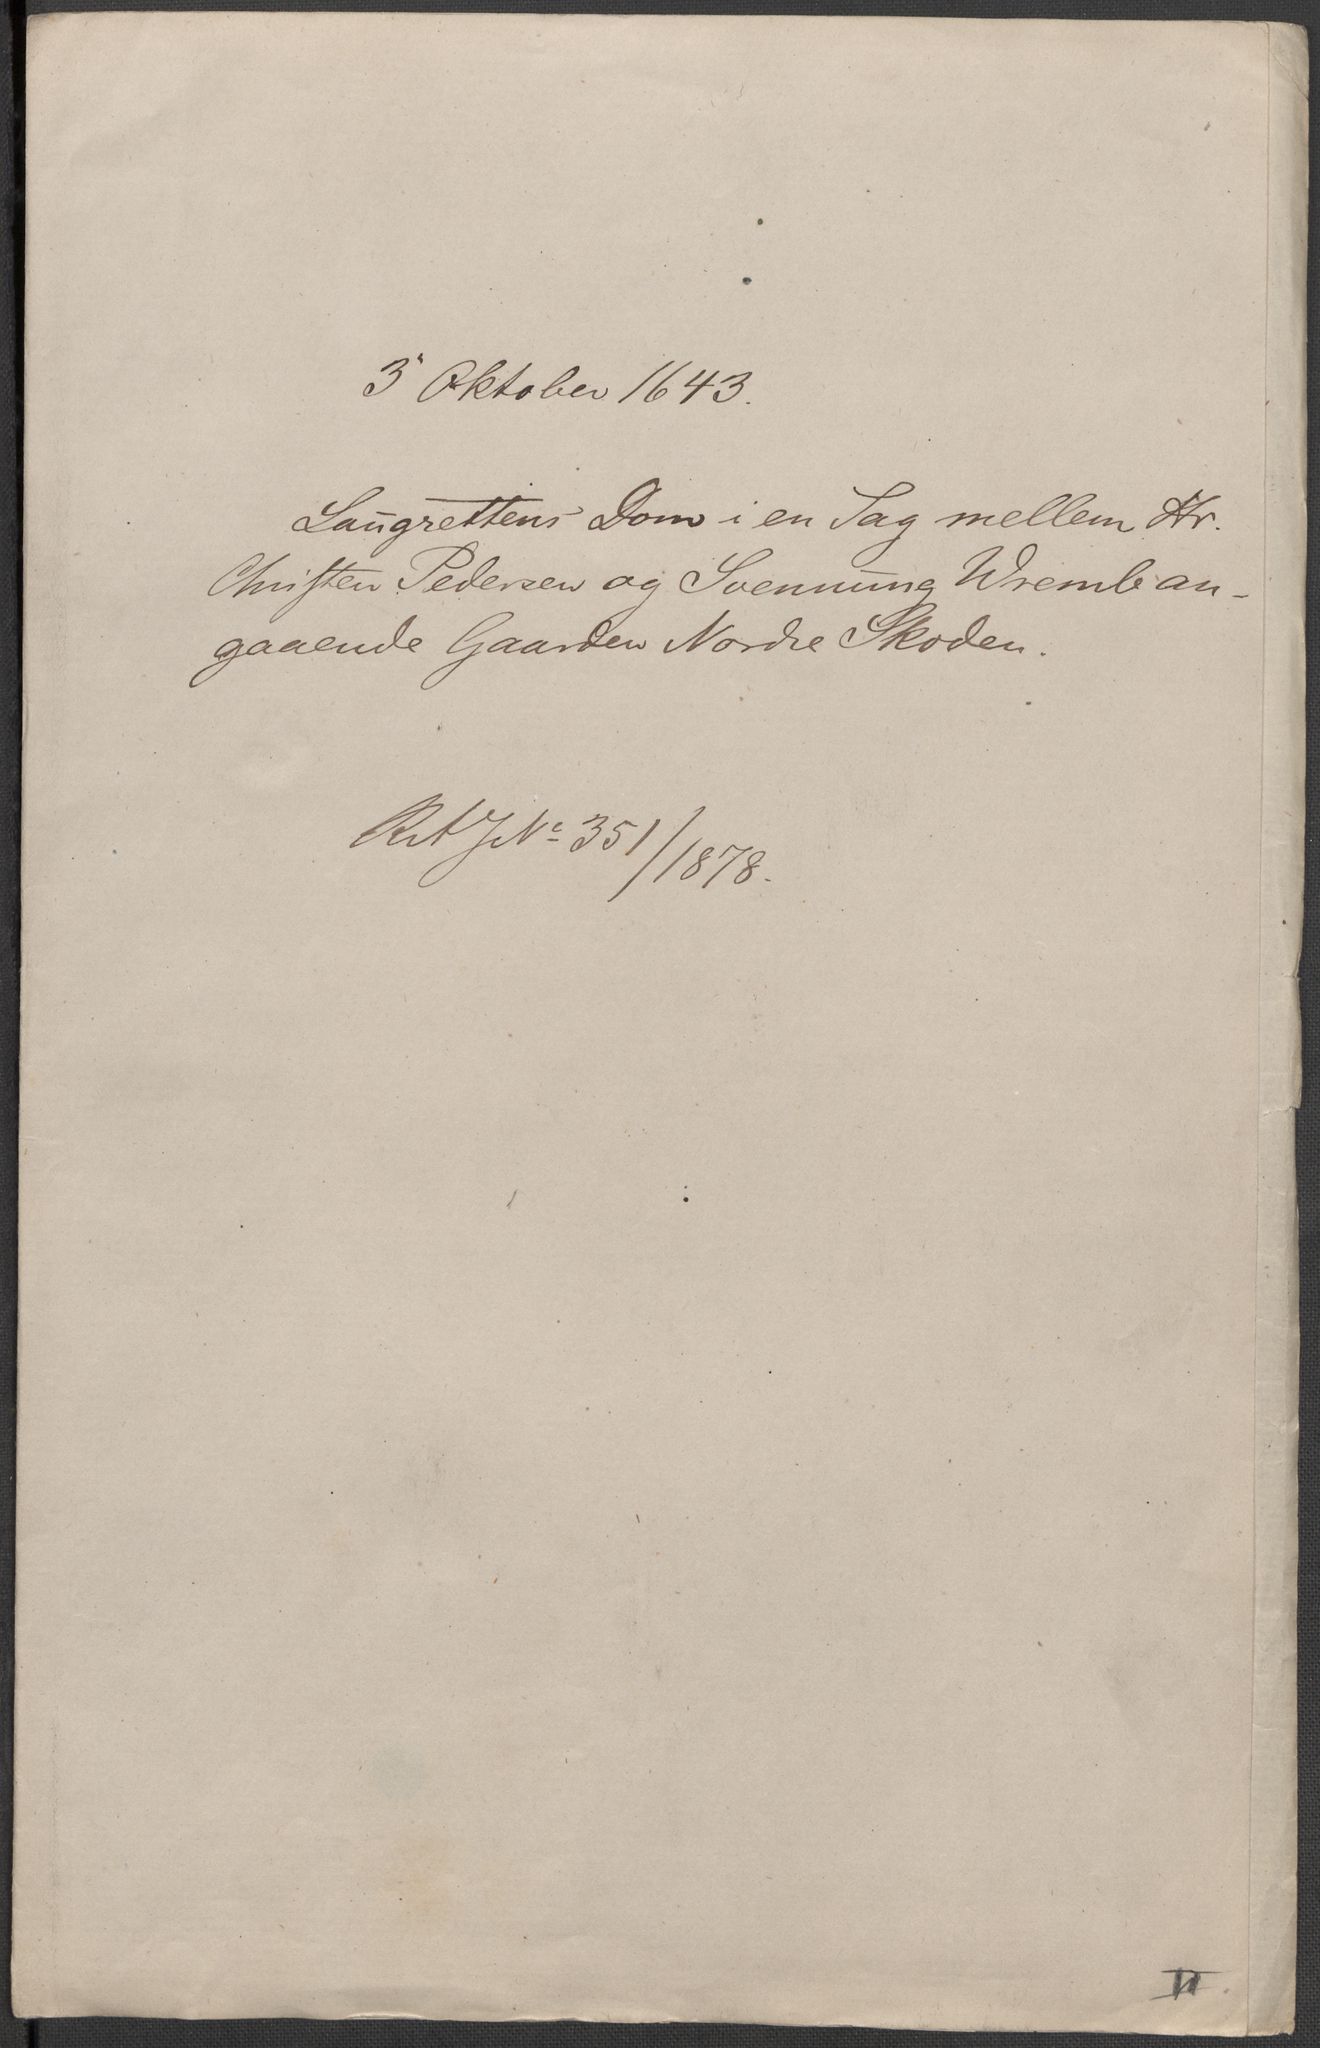 3 Oktober 1643.
Laugrettens Dom i en Sag mellem Hr.
Christen Pedersen og Svennung Wremb an-
gaaende Gaarden Nordre Skoden.
RA J№ 351/1878.